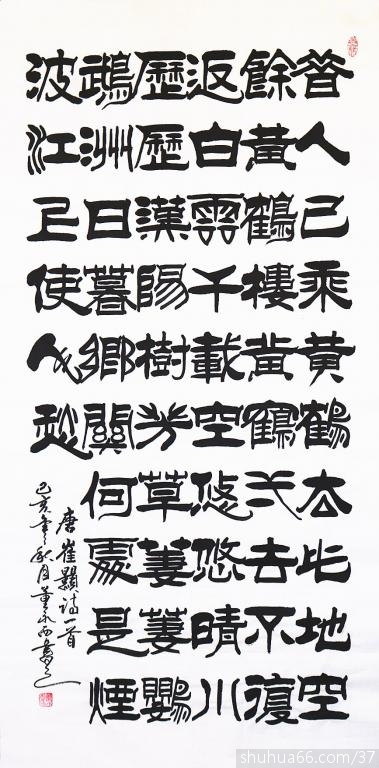 昔人已乘黄鶴去此地空
餘黃鶴樓黃鶴弌去不復
返白雲千載空悠悠晴川
歷歷漢陽樹芳草萋萋鸚
鵡洲日暮鄉關何處是煙
波江上使人愁
唐崔顥詩一首
己亥年秋月董永西書
shuhua66.com/37